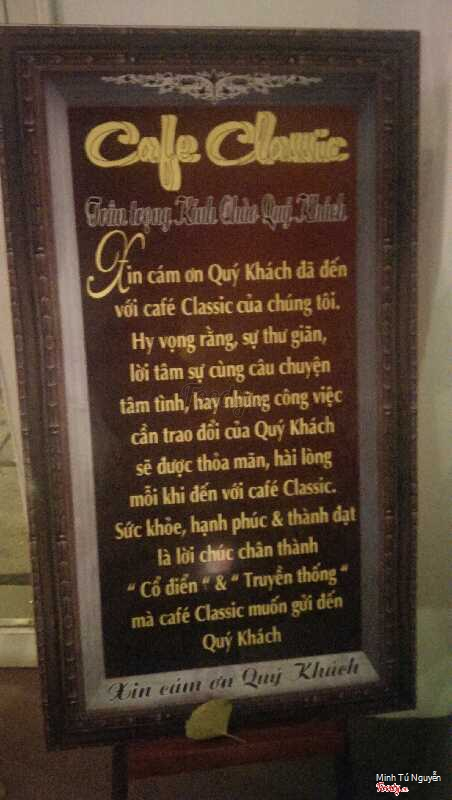 Cafe Classic
Trân trọng Kính Chào Quý Khách
Xin cám ơn Quý Khách đã đến
với café Classic của chúng tôi.
Hy vọng rằng, sự thư giãn,
lời tâm sự cùng câu chuyện
tâm tình, hay những công việc
cần trao đổi của Quý Khách
sẽ được thỏa mãn, hài lòng
mỗi khi đến với café Classic.
Sức khỏe, hạnh phúc & thành đạt
là lời chúc chân thành
“ Cổ điển “ & “ Truyền thống “
mà café Classic muốn gửi đến
Quý Khách
Xin cám ơn Quý Khách
Minh Tú Nguyễn